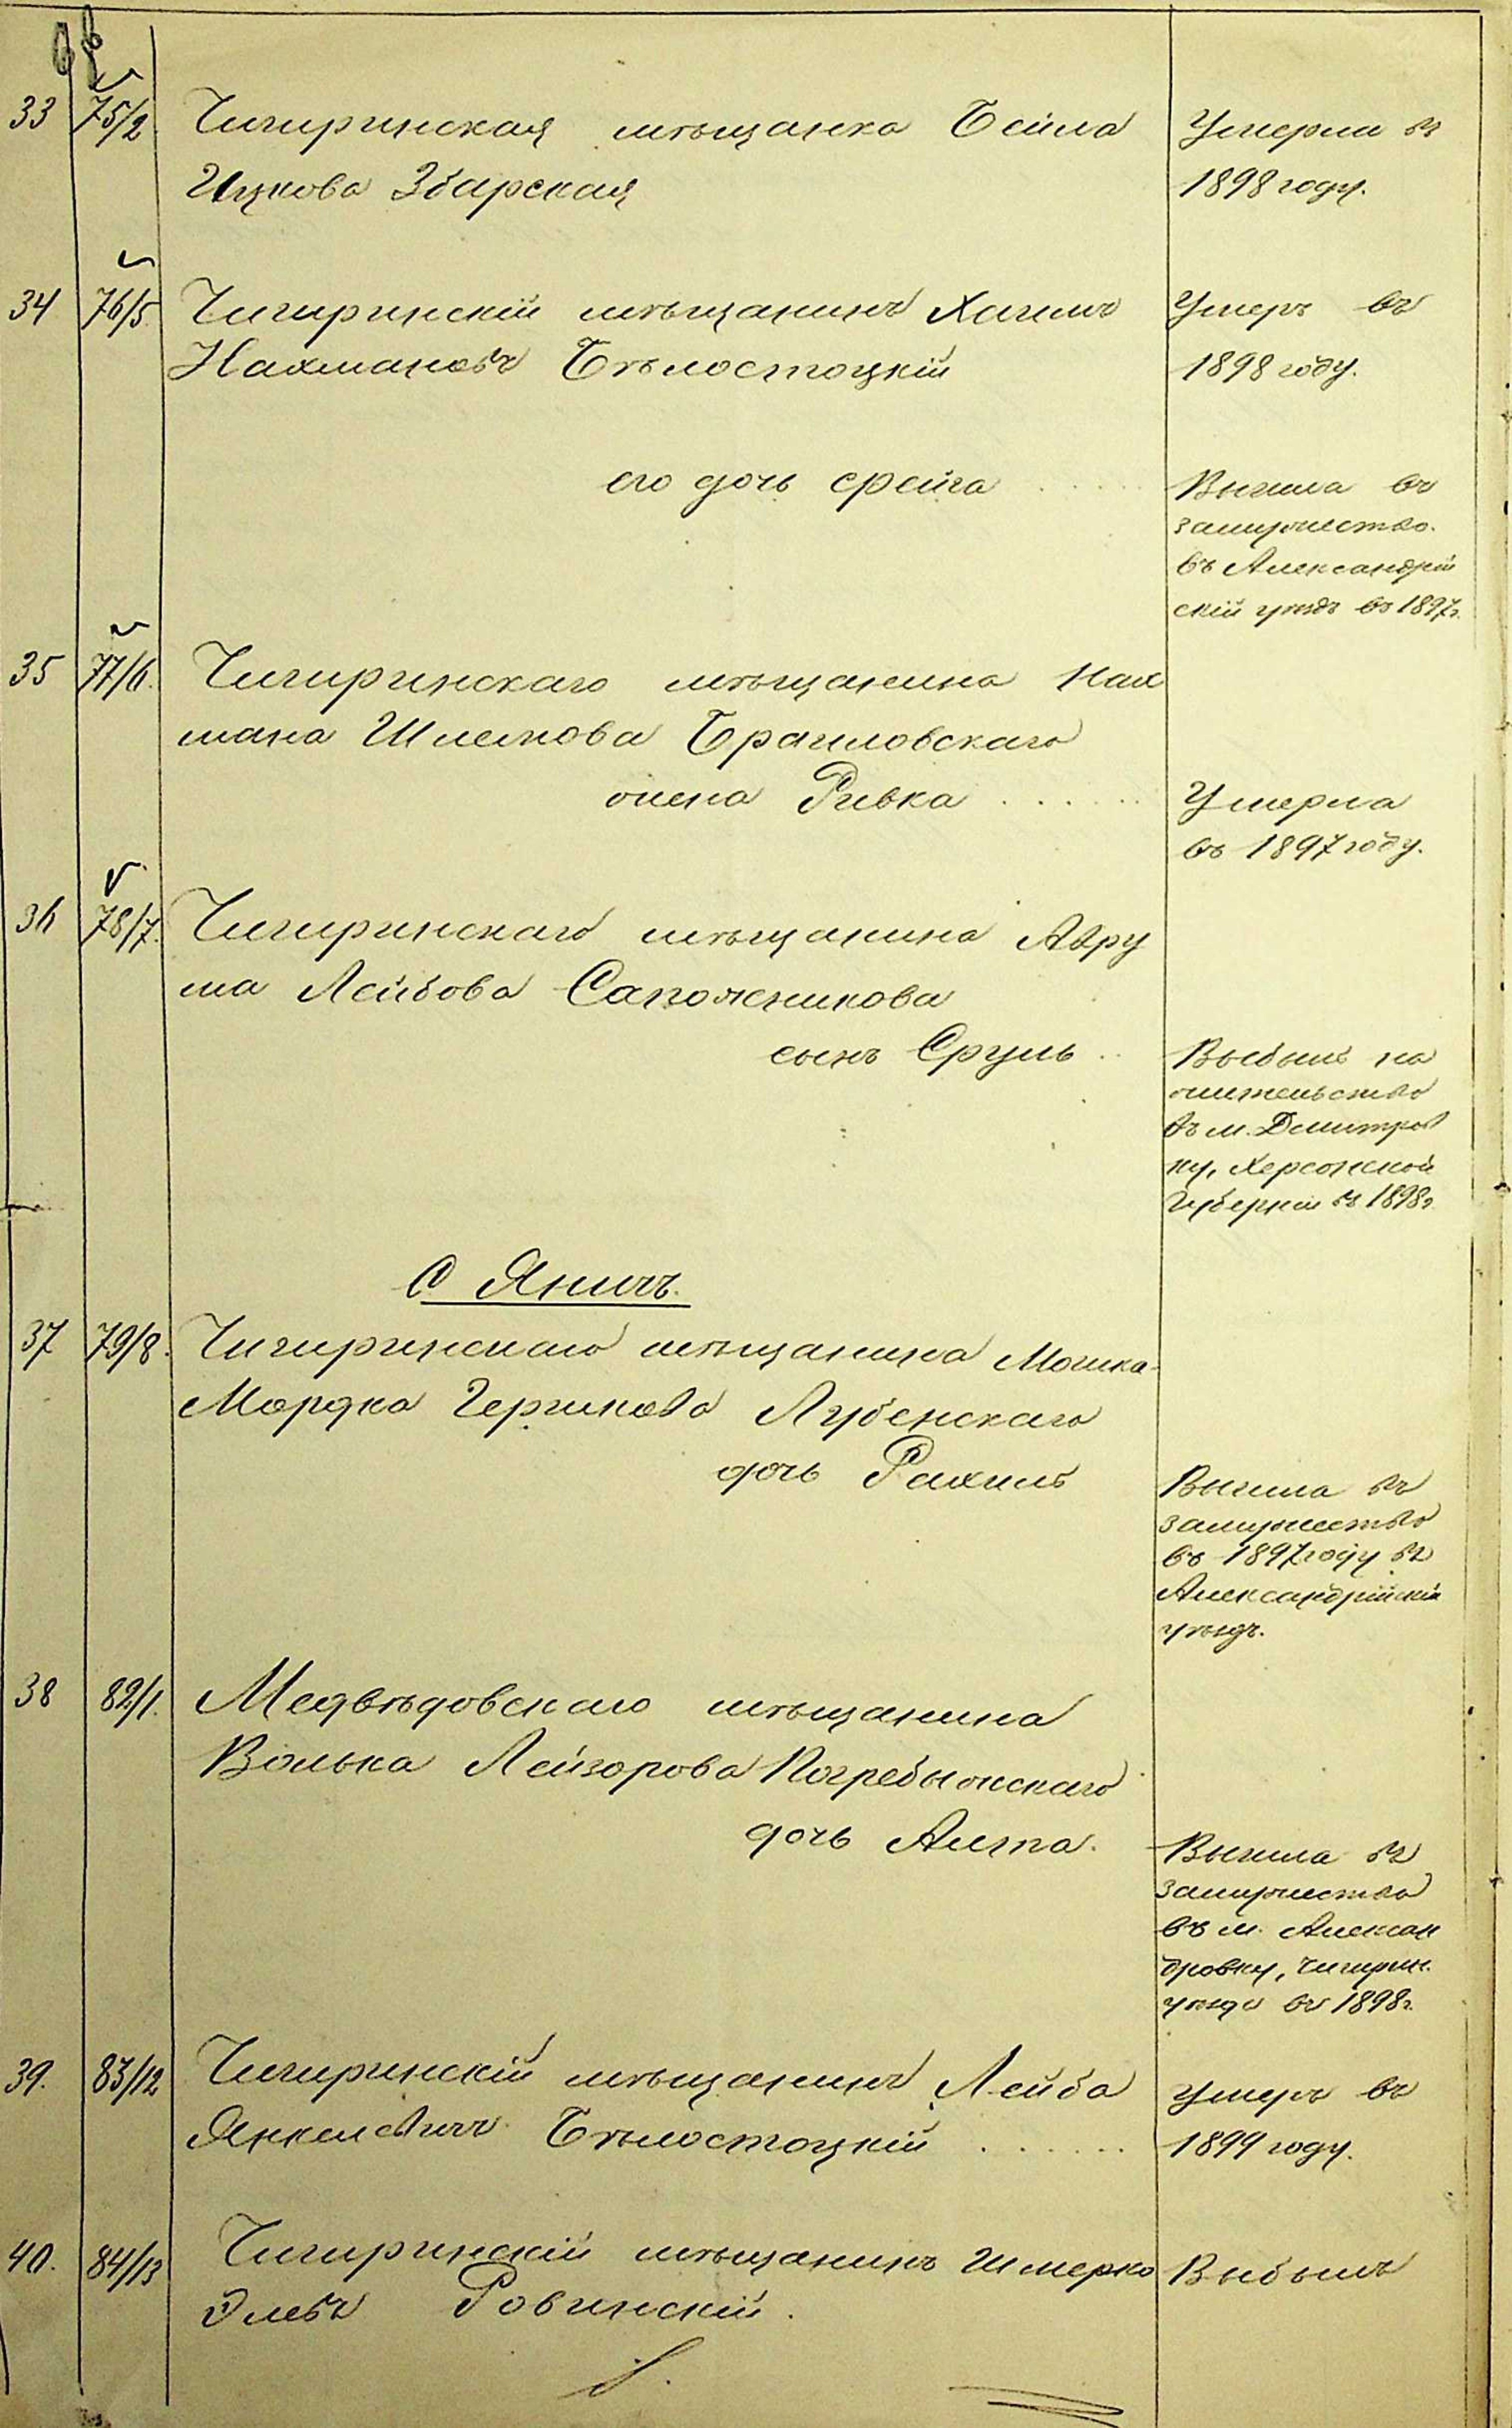 33 75/2 Чигиринская мѣщанка Бейла Умерла въ
Ицкова Збарская 1898 году.
34 76/5 Чигиринскій мѣщанинъ Хаимъ Умеръ въ
Нахмановъ Бѣлостоцкій 1898 году.
его дочь Срейга . . . . . Вышла въ
замужество
въ Александрій
скій уѣздъ въ 1897г.
35 77/6. Чигиринскаго мѣщанина Нах
мана Шлемова Браиловскаго
жена Ривка . . . . . . Умерла
въ 1897 году.
36 78/7. Чигиринскаго мѣщанина Авру
ма Лейбова Сапожникова
сынъ Сруль . . Выбылъ на
жительство
въ м. Дмитров
ку, Херсонской
Губерніи въ 1898г.
С Яничъ.
37 79/8. Чигиринскаго мѣщанина Мошка-
Мордка Гершкова Лубенскаго
дочь Рахиль Вышла въ
замужество
въ 1897 году въ
Александрійскій
уѣздъ.
38 82/1. Медвѣдовскаго мѣщанина
Волька Лейзорова Погребыжскаго
дочь Алта. Вышла въ
замужество
въ м. Алексан
дровку, Чигирин.
уѣзда въ 1898г.
39. 83/12 Чигиринскій мѣщанинъ Лейба Умеръ въ
Янкелевичъ Бѣлостоцкій . . . . . . 1899 году.
40. 84/13 Чигиринскій мѣщанинъ Шмерко Выбылъ
Элевъ Ровинскій.